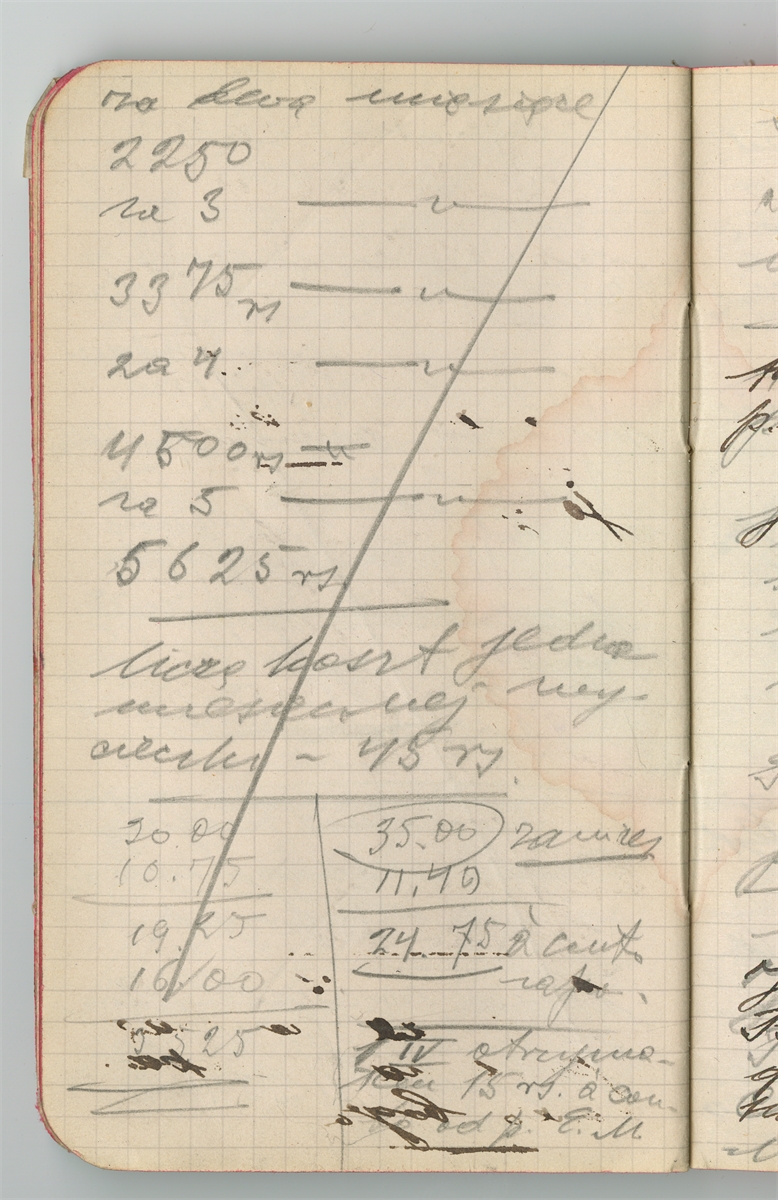 za dwa miesiące
2250
za 3 — „ —
3375 rs — „ —
za 4 — „ —
4500 rs
za 5 — „ —
5625 rs.
liczę koszt jedno
miesięcznej wy-
cieczki – 45 rs.
30 00
10.75
19.25
16.00
3 25
35.00
11.40
24.75 à cont.
1 IV otrzyma-
łem 15 rs. à con-
od p. E. M.